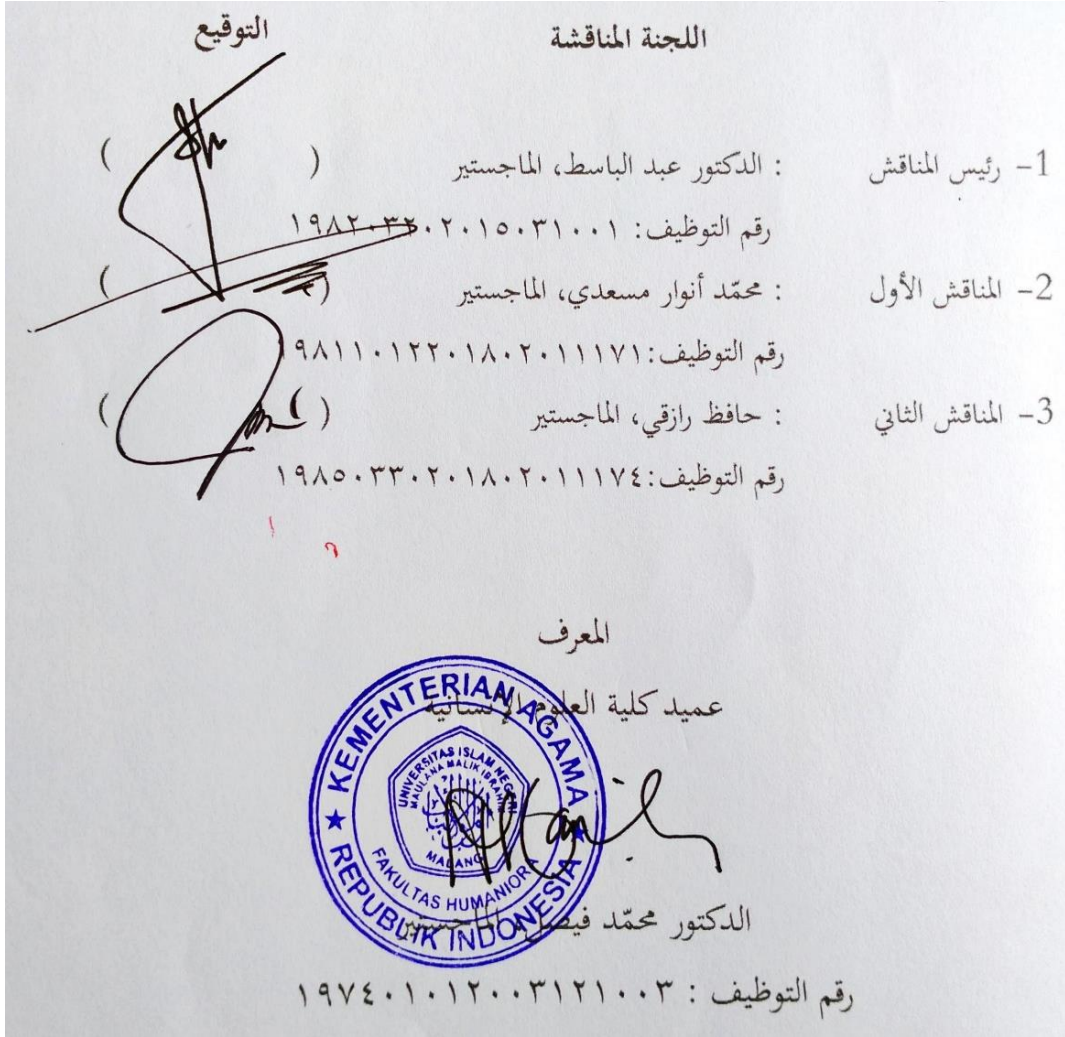 اللجنة المناقشة التوقيع
1- رئيس المناقش : الدكتور عبد الباسط، الماجستير ( )
رقم التوظيف: ١٩٨٢٠٣٢٠٢٠١٥٠٣١٠٠١
2- المناقش الأول : محمّد أنوار مسعدي، الماجستير ( )
رقم التوظيف: ١٩٨١١٠١٢٢٠١٨٠٢٠١١١٧١
3- المناقش الثاني : حافظ رازقي، الماجستير ( )
رقم التوظيف: ١٩٨٥٠٣٣٠٢٠١٨٠٢٠١١١٧٤
المعرف
عميد كلية العلوم الإنسانية
KEMENTERIAN AGAMA
UNIVERSITAS ISLAM NEGERI
MAULANA MALIK IBRAHIM
MALANG
FAKULTAS HUMANIORA
REPUBLIK INDONESIA
الدكتور محمّد فيصل، الماجستير
رقم التوظيف : ١٩٧٤٠١٠١٢٠٠٣١٢١٠٠٣